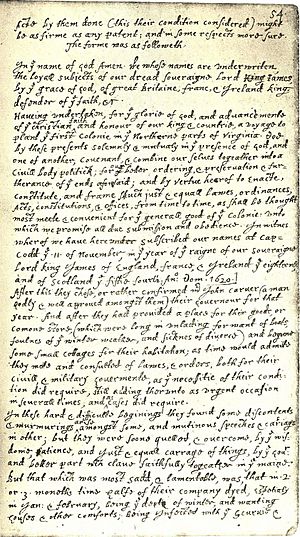 54
ficte by them done (this their condition considered) might
be as firme as any patent; and in some respects more sure.
The forme was as followeth.
In yͤ name of god Amen. We whose names are underwriten,
the loyall subjects of our dread soveraigne Lord King James,
by yͤ grace of god, of great Britaine, franc, & Ireland king,
defender of yͤ faith, &c.
Haveing undertaken, for yͤ glorie of god, and advancemente
of yͤ christian faith and honour of our king & countrie, a voyage to
plant yͤ first colonie in yͤ Northerne parts of Virginia. Doe
by these presents solemnly & mutualy in yͤ presence of god, and
one of another, covenant, & combine our selves togeather into a
Civill body politick; for our better ordering, & preservation & fur-
therance of yͤ ends aforesaid; and by vertue hearof to enacte,
constitute, and frame shuch just & equall Lawes, ordinances,
Acts, constitutions, & offices, from time to time, as shall be thought
most meete & convenient for yͤ generall good of yͤ colonie: unto
which we promise all due submission and obedience. In witnes
wherof we have hereunder subscribed our names at Cap-
Codd yͤ 11 of November, in yͤ year of yͤ raigne of our soveraigne
Lord king James of England, franc, & Ireland yͤ eighteenth
and of Scotland yͤ fiftie fourth. An: Dom. 1620.
After this they chose, or rather confirmed Mr John Carver (a man
godly & well approved amongst them) their Governour for that
year. And after they had provided a place for their goods, or
comone store, (which were long in unlading for want of boats,
foulnes of yͤ winter weather, and sicknes of diverce) and begune
some small cottages for their habitation; as time would admitte
they mette and consulted of Lawes, & orders, both for their
civill & military govermente, as yͤ necessitie of their condi-
tion did require, still adding therunto as urgent occasion
in severall times, and as cases did require.
In these hard & difficulte beginings they found some discontents
& murmurings arise amongst some, and mutinous speeches & cariags
in other; but they were soone quelled & overcome, by yͤ wis-
dome, patience, and just & equall carrage of things, by yͤ Govr
and better part wch clave faithfully togeather in yͤ maine.
But that which was most sadd & lamentable, was, that in 2
or 3. moneths time halfe of their company dyed, espetialy
in Jan: & february, being yͤ depth of winter, and wanting
houses & other comforts; being Infected with yͤ Scurvie &